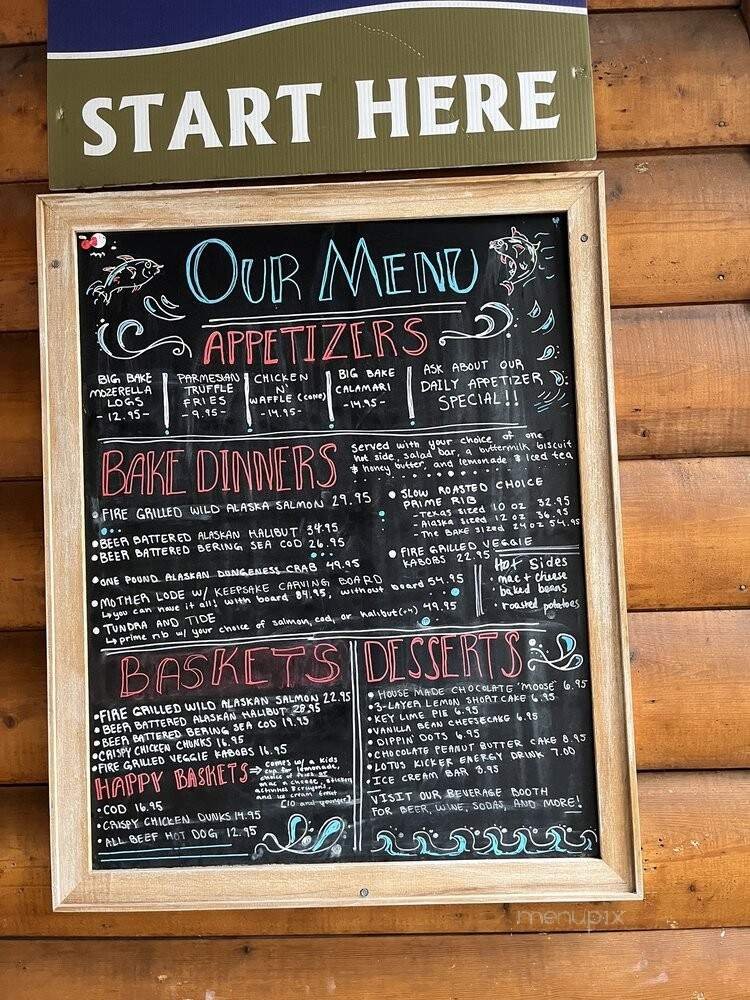 START HERE
OUR MENU
APPETIZERS
BIG BAKE
MOZERELLA
LOGS
- 12.95 -
PARMESIAN
TRUFFLE
FRIES
- 9.95 -
CHICKEN
N'
WAFFLE (CONE)
- 14.95 -
BIG BAKE
CALAMARI
- 14.95 -
ASK ABOUT OUR
DAILY APPETIZER
SPECIAL!!
BAKE DINNERS
served with your choice of one
hot side, salad bar, a buttermilk biscuit
& honey butter, and lemonade & iced tea
• FIRE GRILLED WILD ALASKA SALMON 29.95
• BEER BATTERED ALASKAN HALIBUT 34.95
• BEER BATTERED BERING SEA COD 26.95
• ONE POUND ALASKAN DUNGENESS CRAB 49.95
• MOTHER LODE W/ KEEPSAKE CARVING BOARD
↳ you can have it all! with board 84.95, without board 54.95
• TUNDRA AND TIDE
↳ prime rib w/ your choice of salmon, cod, or halibut(+4) 49.95
• SLOW ROASTED CHOICE
PRIME RIB
- Texas sized 10 oz 32.95
- Alaska sized 12 oz 36.95
- The BAKE sized 24 oz 54.95
• FIRE GRILLED VEGGIE
KABOBS 22.95
Hot Sides
• mac + cheese
• baked beans
• roasted potatoes
BASKETS
• FIRE GRILLED WILD ALASKAN SALMON 22.95
• BEER BATTERED ALASKAN HALIBUT 28.95
• BEER BATTERED BERING SEA COD 19.95
• CRISPY CHICKEN CHUNKS 16.95
• FIRE GRILLED VEGGIE KABOBS 16.95
HAPPY BASKETS
→ comes w/ a kids
cup for lemonade,
choice of fries or
mac & cheese, sticker
activities & crayons,
and ice cream treat
(10 and younger)
• COD 16.95
• CRISPY CHICKEN DUNKS 14.95
• ALL BEEF HOT DOG 12.95
DESSERTS
• HOUSE MADE CHOCOLATE "MOOSE" 6.95
• 3-LAYER LEMON SHORTCAKE 6.95
• KEY LIME PIE 6.95
• VANILLA BEAN CHEESECAKE 6.95
• DIPPIN' DOTS 6.95
• CHOCOLATE PEANUT BUTTER CAKE 8.95
• LOTUS KICKER ENERGY DRINK 7.00
• ICE CREAM BAR 3.95
VISIT OUR BEVERAGE BOOTH
FOR BEER, WINE, SODAS, AND MORE!
menupix